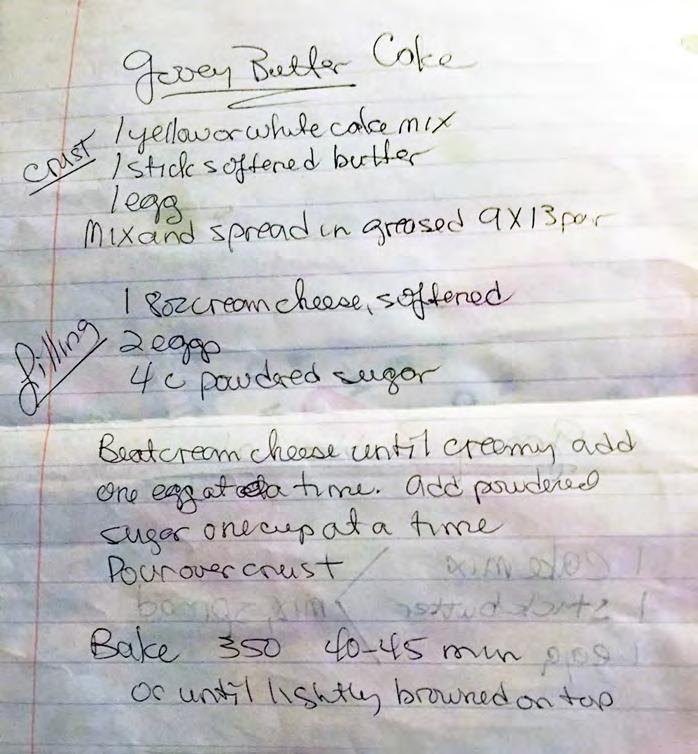 Gooey Butter Cake
crust
1 yellow or white cake mix
1 stick softened butter
1 egg
Mix and spread in greased 9X13 pan
filling
1 8oz cream cheese, softened
2 eggs
4 c powdered sugar
Beat cream cheese until creamy add
one egg at a time. add powdered
sugar one cup at a time
Pour over crust
Bake 350 40-45 min
or until lightly browned on top
1 Cake mix
1 stick butter mix, spread
1 egg